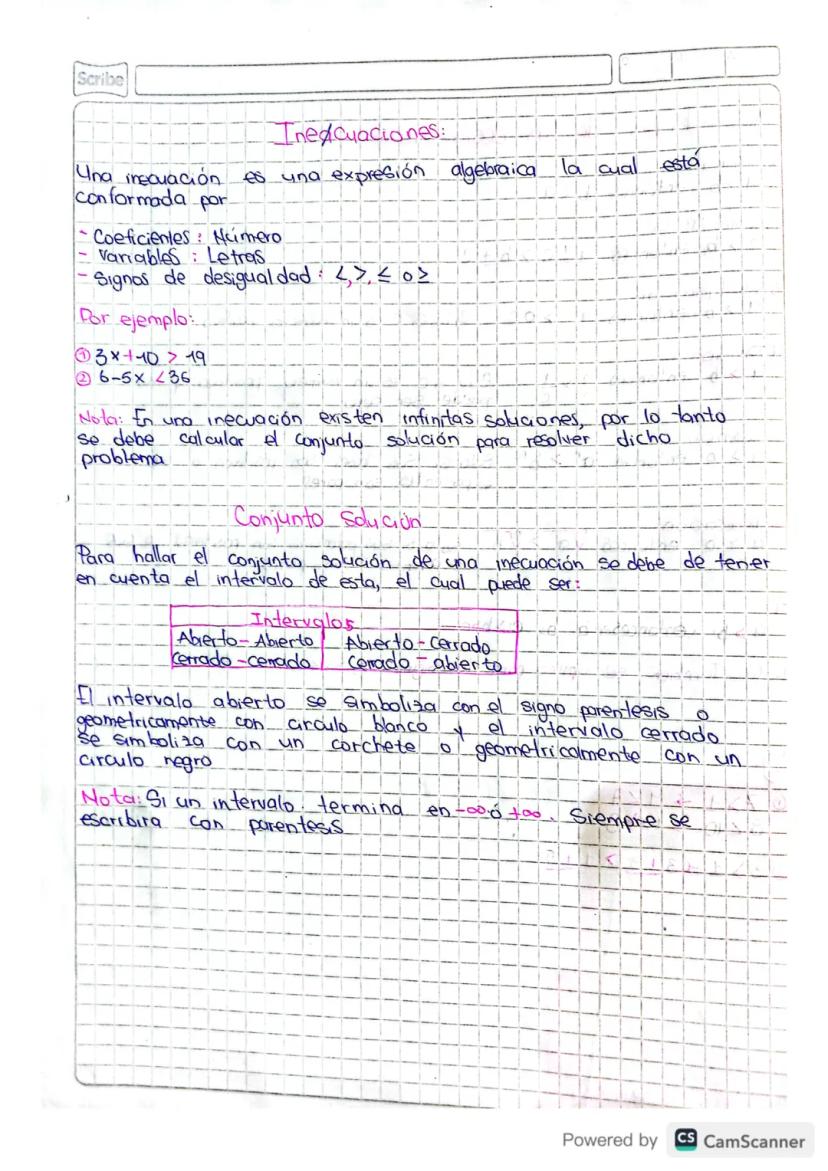 Scribe
Inecuaciones:
Una inecuación es una expresión algebraica la cual está
conformada por
- Coeficientes: Número
- Variables: Letras
- Signos de desigualdad: <,>,≤ o ≥
Por ejemplo:
① 3x+10 > 19
② 6-5x <36
Nota: En una inecuación existen infinitas soluciones, por lo tanto
se debe calcular el conjunto solución para resolver dicho
problema
Conjunto Solución
Para hallar el conjunto solución de una inecuación se debe de tener
en cuenta el intervalo de esta, el cual puede ser:
Intervalos
Abierto - Abierto Abierto - Cerrado
Cerrado - cerrado Cerrado - abierto
El intervalo abierto se simboliza con el signo parentesis o
geometricamente con circulo blanco y el intervalo cerrado
se simboliza con un corchete o geometricalmente con un
circulo negro
Nota: Si un intervalo termina en -∞ ó +∞. Siempre se
escribira con parentesis
Powered by CS CamScanner